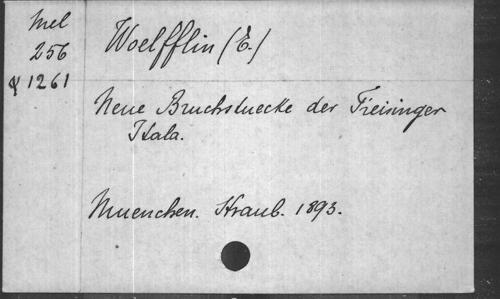 Mel
256
1261
Woelfflin (E.)
Neue Bruchstuecke der Freisinger
Itala.
Muenchen. Straub. 1893.